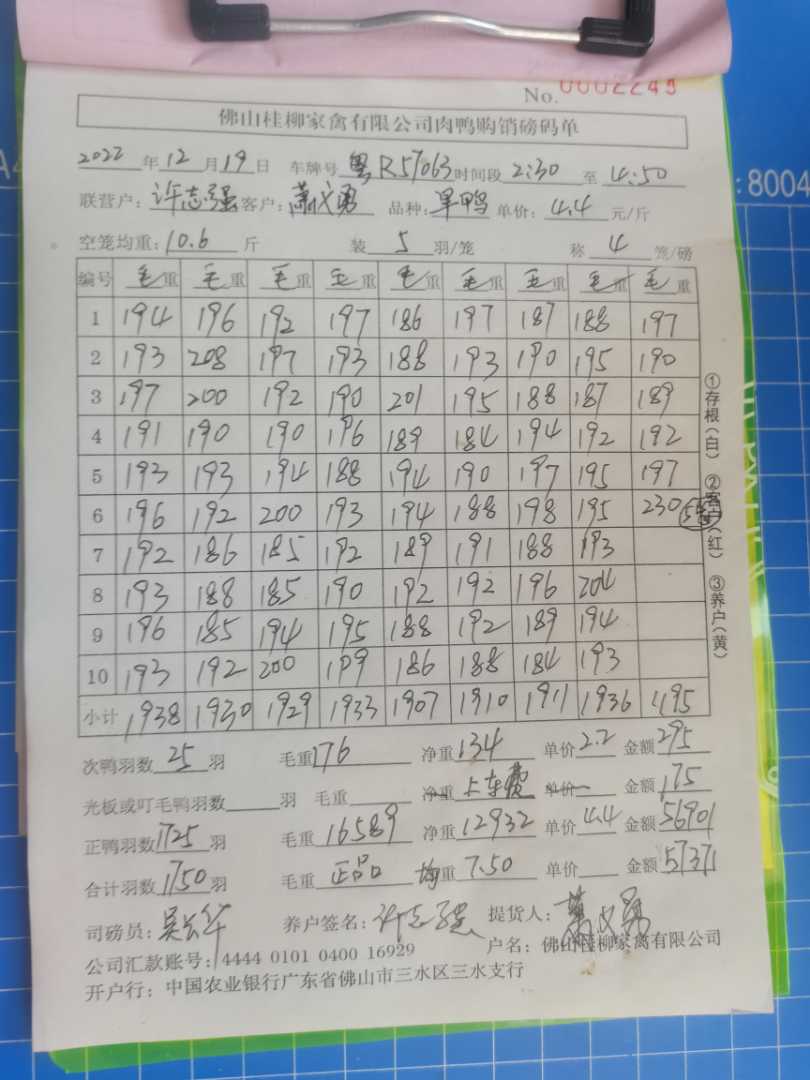 No. 0002245
佛山桂柳家禽有限公司肉鸭购销磅码单
2022 年 12 月 19 日 车牌号 粤R57063 时间段 2:30 至 4:50
联营户：许志强 客户：萧文勇 品种：旱鸭 单价：4.4 元/斤
空笼均重：10.6 斤 装 5 羽/笼 称 4 笼/磅
编号 毛重 毛重 毛重 毛重 毛重 毛重 毛重 毛重 毛重
1 194 196 192 197 186 197 187 188 197
2 193 208 197 193 188 193 190 195 190
3 197 200 192 190 201 195 188 187 189
4 191 190 190 196 189 184 194 192 192
5 193 193 194 188 194 190 197 195 197
6 196 192 200 193 194 188 198 195 230
7 192 186 185 192 189 191 188 193
8 193 188 185 190 192 192 196 204
9 196 185 194 195 188 192 189 194
10 193 192 200 199 186 188 184 193
小计 1938 1930 1929 1933 1907 1910 1911 1936 1195
①存根（白） ②客户（红） ③养户（黄）
次鸭羽数 25 羽 毛重 176 净重 134 单价 2.2 金额 295
光板或叮毛鸭羽数 羽 毛重 净重 上车费 单价 金额 175
正鸭羽数 1725 羽 毛重 16589 净重 12932 单价 4.4 金额 56901
合计羽数 1750 羽 毛重 正品 均重 7.50 单价 金额 57371
司磅员： 养户签名：许志强 提货人：萧文勇
公司汇款账号：4444 0101 0400 16929 户名：佛山桂柳家禽有限公司
开户行：中国农业银行广东省佛山市三水区三水支行
:8004